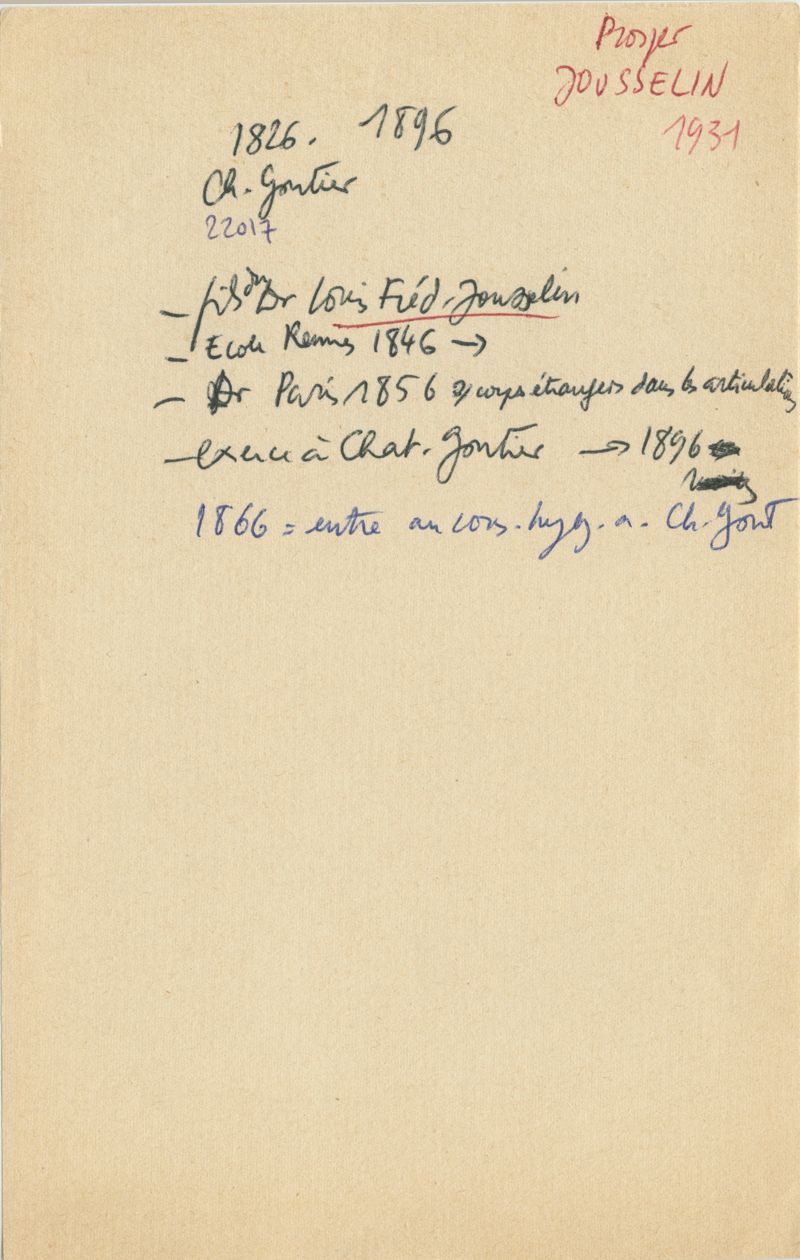 Prosper
JOUSSELIN
1931
1826. 1896
Ch. Gontier
22017
– fils du Dr Louis Fréd. Jousselin
– Ecole Rennes 1846 →
– Dr Paris 1856 corps étrangers dans les articulations
– exerce à Chat. Gontier → 1896
1866 = entre au cons. hyg. a. Ch. Gont